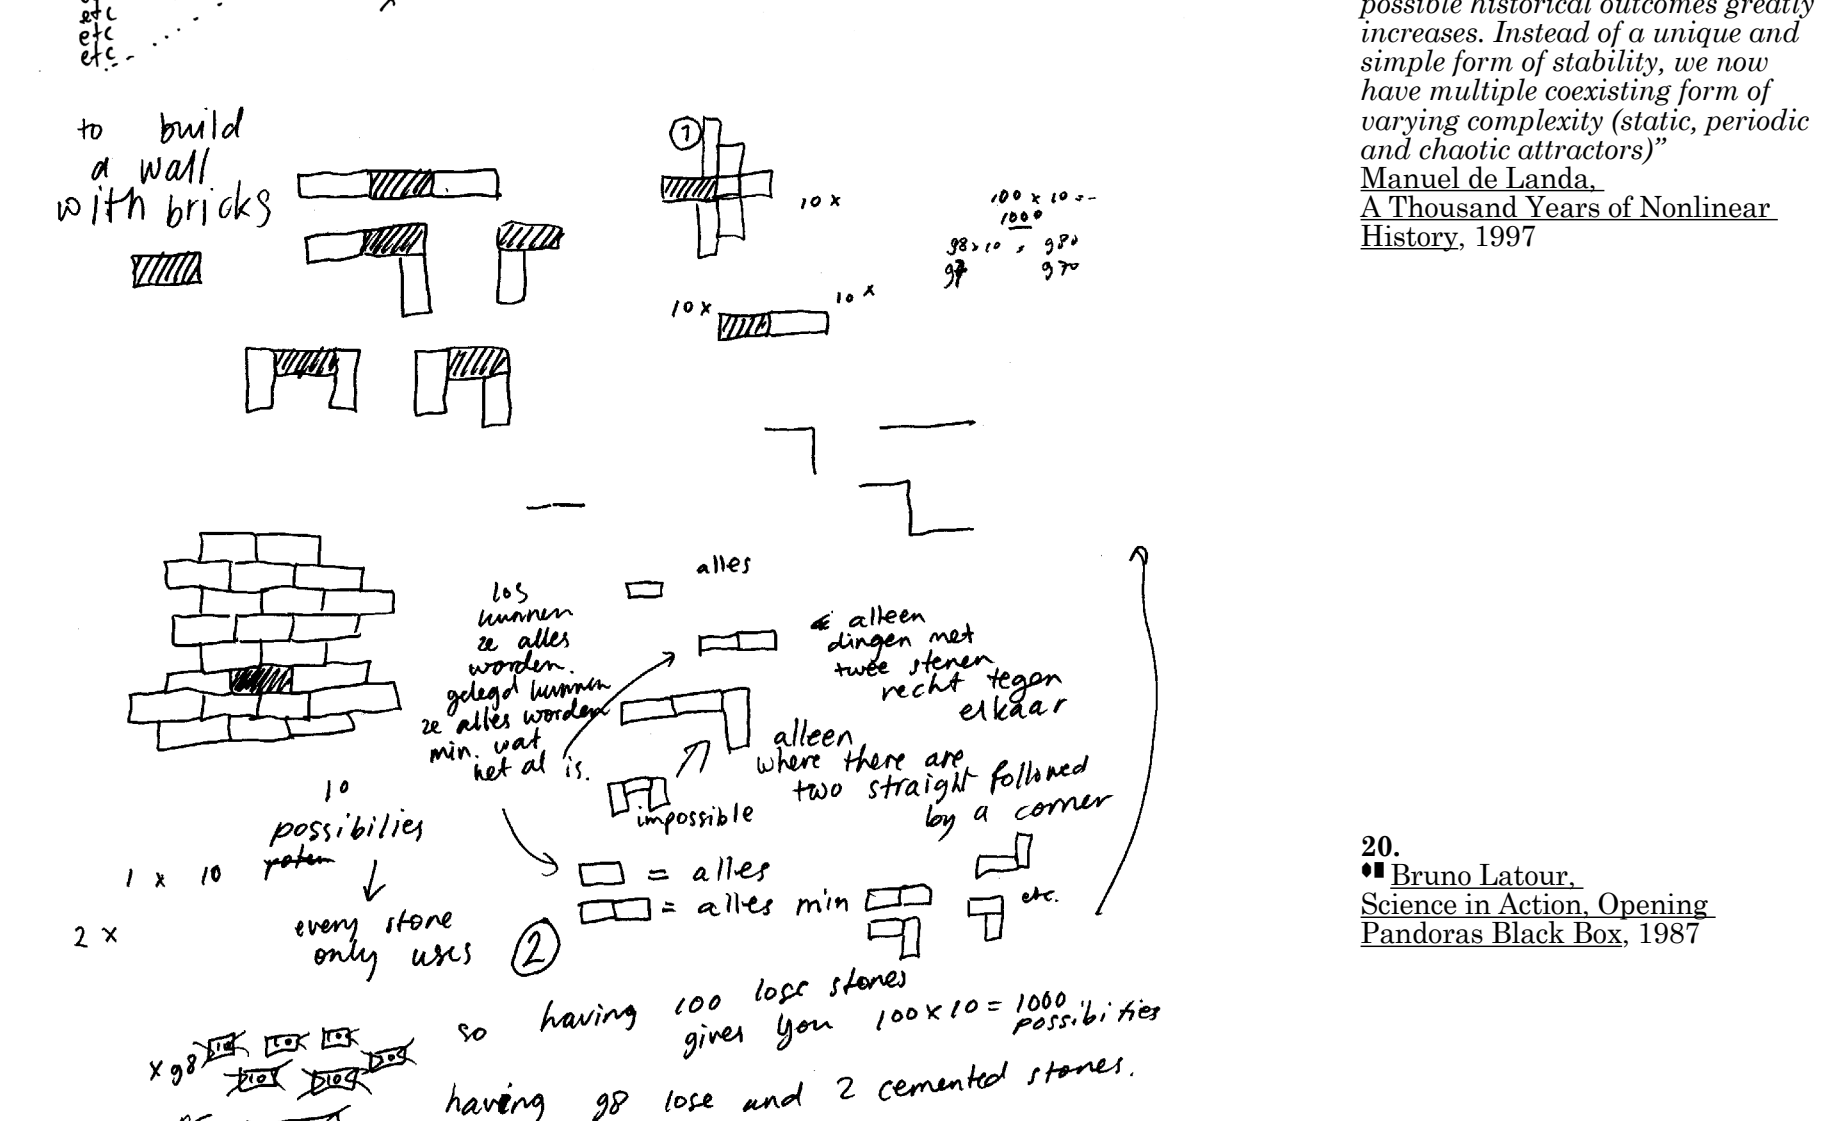 etc
etc
etc
to build
a wall
with bricks
1
10 x
100 x 10 =
1000
98 x 10 = 980
97 970
10 x
10 x
alles
los
kunnen
ze alles
worden.
gelegd kunnen
ze alles worden
min. wat
het al is.
alleen
dingen met
twee stenen
recht tegen
elkaar
alleen
where there are
two straight followed
by a corner
impossible
10
possibilies
1 x 10
2 x
every stone
only uses
2
= alles
= alles min
etc.
so having 100 lose stones
gives you 100 x 10 = 1000
possibities
x 98
10
10
10
10
10
10
having 98 lose and 2 cemented stones.
possible historical outcomes greatly
increases. Instead of a unique and
simple form of stability, we now
have multiple coexisting form of
varying complexity (static, periodic
and chaotic attractors)”
Manuel de Landa,
A Thousand Years of Nonlinear
History, 1997
20.
Bruno Latour,
Science in Action, Opening
Pandoras Black Box, 1987